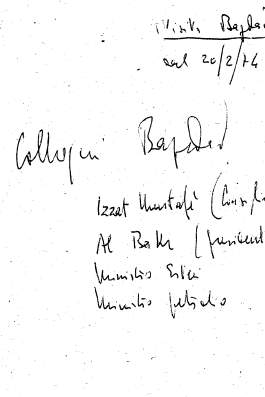 Visita Bagdad
dal 20/2/74
Colloqui Bagdad
Izzat Mustafà (Consigli
Al Bakr (president
Ministro Esteri
Ministro petrolio